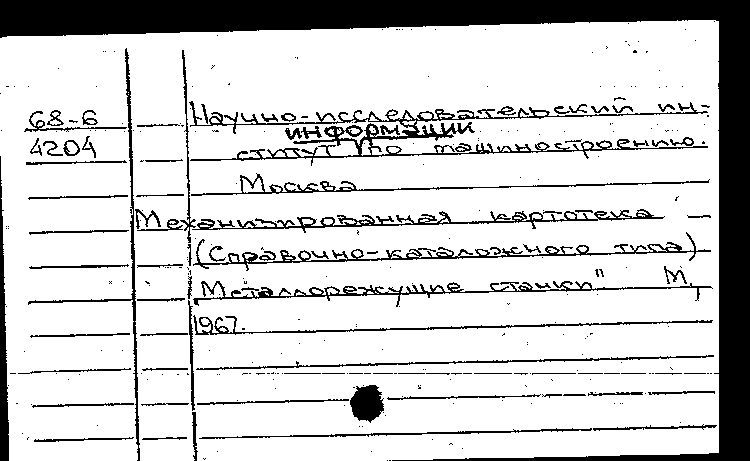 68-6
4204
Научно-исследовательский ин-
информации
ститут по машиностроению.
Москва
Механизированная картотека
(Справочно-каталожного типа)
"Металлорежущие станки". М.,
1967.